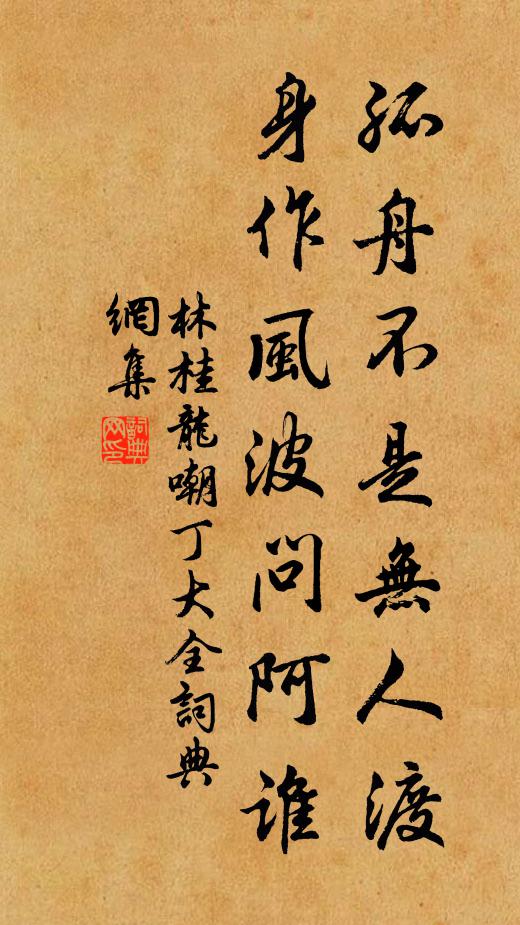 孤舟不是無人渡
身作風波問阿誰
林桂龍嘲丁大全詞典
網集
詞典
网印